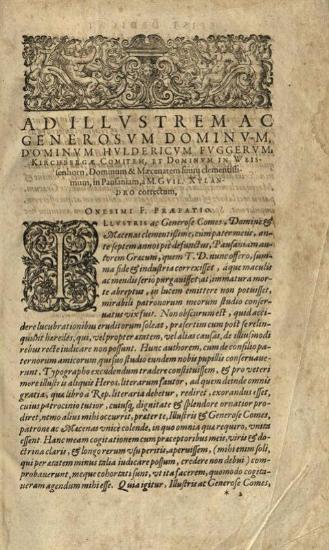 AD ILLVSTREM AC
GENEROSVM DOMINVM,
DOMINVM HVLDERICVM FVGGERVM,
KIRCHBERGÆ COMITEM, ET DOMINVM IN WEIS-
senhorn, Dominum & Mæcenatem suum clementissi-
mum, in Pausaniam, à M. GVIL. XYLAN-
DRO correctum,
ONESIMI F. PRÆFATIO.
ILLVSTRIS ac Generose Comes, Domine &
Mæcenas clementissime, cum pater meus, an-
te septem annos piè defunctus, Pausaniam au-
torem Græcum, quem T. D. nunc offero, sum-
ma fide & industria correxisset, a que maculis
ac mendis ferio purgauisset at; immatura mor-
te abreptus, in lucem emittere non potuisset,
mirabili patronorum meorum studio conser-
uatus vix fuit. Non obscurum est, quid acci-
dere lucubrationibus eruditorum soleat, præsertim cum post se relin-
quist hæredes, qui, vel propter ætatem, vel alias causas, de illiusmodi
rebus rectè iudicare non possunt. Hunc authorem, cum de consilio pa-
tronorum amicorum, qui suo studio eundem nobis pupillis conseruaue-
runt, Typographo excudendum tradere constituissem, & pro veteri
more illustris aliquis Heros, literarum fautor, ad quem deinde omnis
gratia, qua libro à Rep. literaria debetur, rediret, exorandus esset,
cuius patrocinio tutior, cuiusq; dignitate & splendore ornatior pro-
diret, nemo alius mihi occurrit, præter te, Illustris & Generose Comes,
patrone ac Mæcenas vnicè colende, in quo omnia quæ requiro, vnita
essent. Hanc meam cogitationem cum præceptoribus meis, viris & do-
ctrina claris, & longo rerum vsu peritis, aperuissem, (mihi enim soli,
qui per ætatem minus talia iudicare possum, credere non debui) com-
probauerunt, meque cohortati sunt, vt ita facerem, quomodo cogita-
ueram agendum mihi esse. Quia igitur, Illustris ac Generose Comes,
* 2